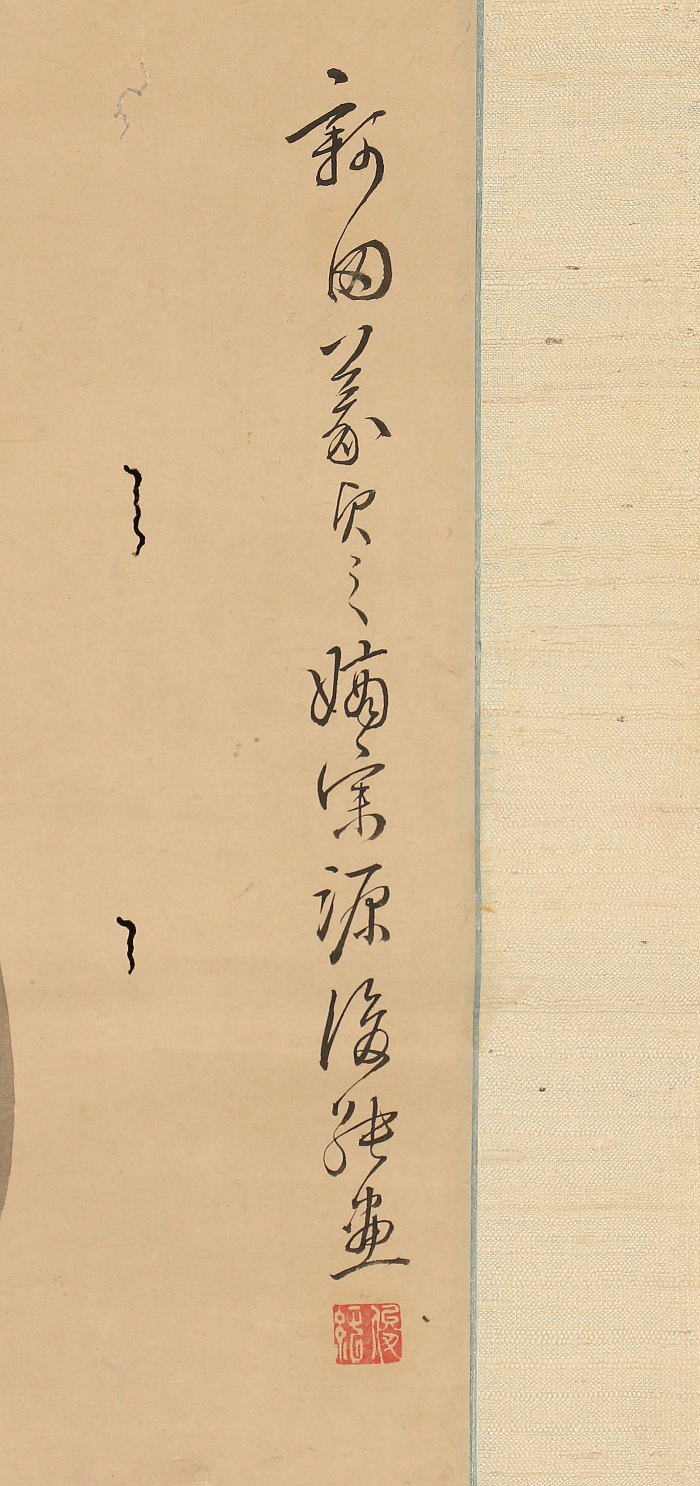 新田義貞之嫡宗源俊純畫
俊純